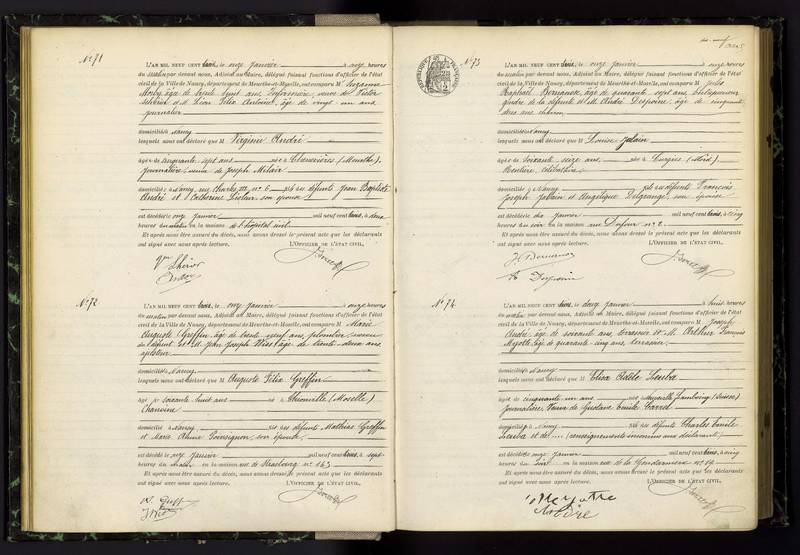 N° 71
L'AN MIL NEUF CENT trois, le onze janvier à onze heures
du matin par devant nous, Adjoint au Maire, délégué faisant fonctions d'officier de l'état
civil de la Ville de Nancy, département de Meurthe-et-Moselle, ont comparu M Suzanne
âgée de trente huit ans, infirmière, veuve de Victor
et M. Léon Félix Antoine, âgé de vingt un ans
journalier
domiciliés à Nancy
lesquels nous ont déclaré que M Virginie André
âgée de cinquante sept ans née à (Meurthe)
journalière, veuve de Joseph
domiciliée à Nancy, rue Charles III n° 6 fille des défunts Jean Baptiste
André et Catherine son épouse
est décédée ce onze janvier mil neuf cent trois, à deux
heures du matin en la maison de l'hôpital civil
Et après nous être assuré du décès, nous avons dressé le présent acte que les déclarants
ont signé avec nous après lecture. L'OFFICIER DE L'ÉTAT CIVIL,
N° 72
L'AN MIL NEUF CENT trois, le onze janvier à onze heures
du matin par devant nous, Adjoint au Maire, délégué faisant fonctions d'officier de l'état
civil de la Ville de Nancy, département de Meurthe-et-Moselle, ont comparu M Marie
Auguste Greffin, âgé de trente neuf ans, plombier,
du défunt et M. Jean Joseph âgé de trente deux ans
ajusteur
domiciliés à Nancy
lesquels nous ont déclaré que M Auguste Félix Greffin
âgé de soixante huit ans né à Thionville (Moselle)
domicilié à Nancy fils des défunts Mathias Greffin
et Marie Poinsignon, son épouse
est décédé ce onze janvier mil neuf cent trois, à sept
heures du matin en la maison rue de Strasbourg n° 163
Et après nous être assuré du décès, nous avons dressé le présent acte que les déclarants
ont signé avec nous après lecture. L'OFFICIER DE L'ÉTAT CIVIL,
N° 73
RÉPUBLIQUE FRANÇAISE
L'AN MIL NEUF CENT trois, le onze janvier à onze heures
du matin par devant nous, Adjoint au Maire, délégué faisant fonctions d'officier de l'état
civil de la Ville de Nancy, département de Meurthe-et-Moselle, ont comparu M Jules
Raphaël âgé de quarante sept ans,
gendre de la défunte et M. André Despoine, âgé de cinquante
deux ans
domiciliés à Nancy
lesquels nous ont déclaré que M Louise Jolain
âgée de soixante seize ans née à Curgies (Nord)
Rentière, célibataire
domiciliée à Nancy fille des défunts François
Joseph Jolain et Angélique Delgrange, son épouse
est décédée le dix janvier mil neuf cent trois, à cinq
heures du soir en la maison rue n° 2
Et après nous être assuré du décès, nous avons dressé le présent acte que les déclarants
ont signé avec nous après lecture. L'OFFICIER DE L'ÉTAT CIVIL,
N° 74
L'AN MIL NEUF CENT trois, le douze janvier à huit heures
du matin par devant nous, Adjoint au Maire, délégué faisant fonctions d'officier de l'état
civil de la Ville de Nancy, département de Meurthe-et-Moselle, ont comparu M Joseph
André âgé de soixante ans, terrassier et M. Arthur François
Myotte, âgé de quarante cinq ans, terrassier
domiciliés à Nancy
lesquels nous ont déclaré que M Elisa Adèle
âgée de cinquante un ans née à (Suisse)
journalière, veuve de Gustave Emile Carrel
domiciliée à Nancy fille des défunts Charles Emile
et de .... (renseignements inconnus aux déclarants)
est décédée onze janvier mil neuf cent trois, à cinq
heures du soir en la maison rue de la Gendarmerie n° 19
Et après nous être assuré du décès, nous avons dressé le présent acte que les déclarants
ont signé avec nous après lecture. L'OFFICIER DE L'ÉTAT CIVIL,